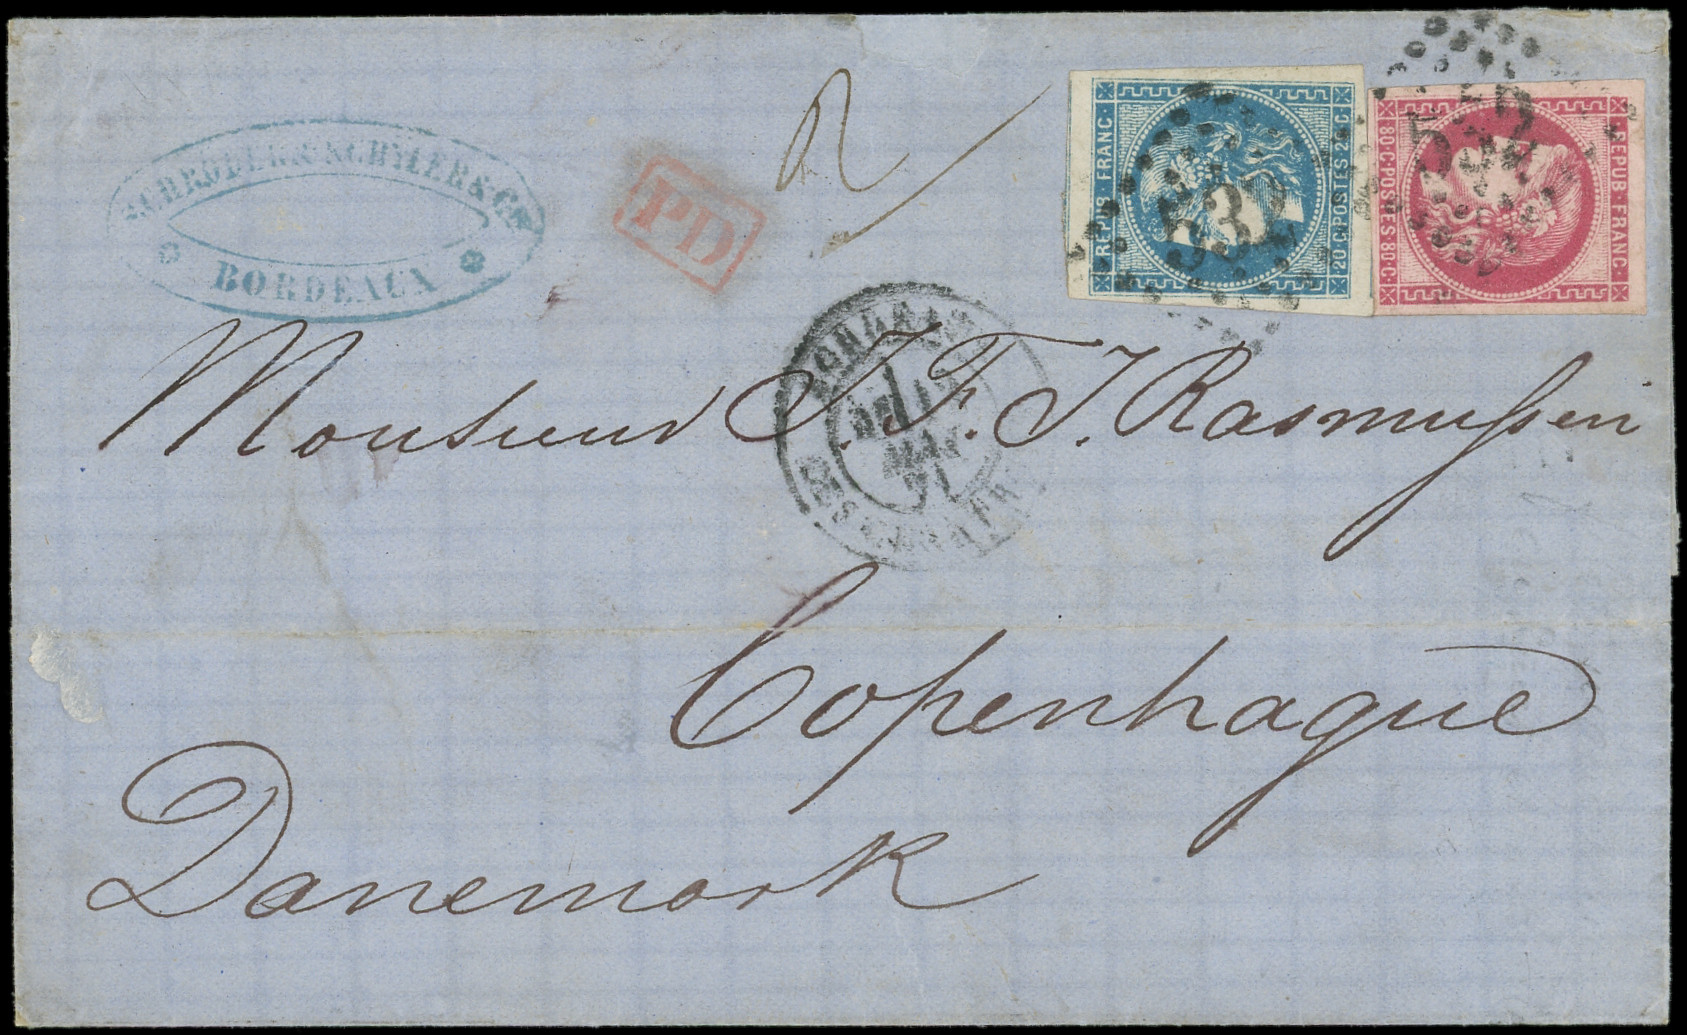 SCHRÖDER & SCHŸLER & Cº
BORDEAUX
PD
REPUB · FRANC
20 · C · POSTES · 20 · C
532
REPUB · FRANC
80 · C · POSTES · 80 · C
532
MAI
71
Monsieur J. F. J. Rasmussen
Copenhague
Danemark